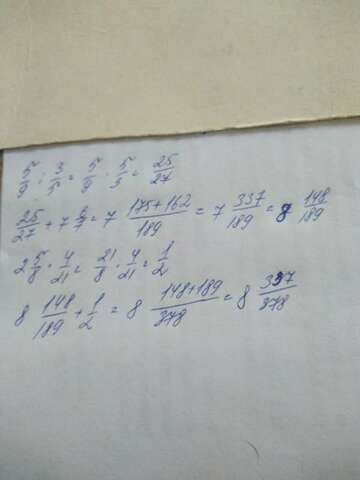 5/9 : 3/5 = 5/9 · 5/3 = 25/27
25/27 + 7 6/7 = 7 175+162/189 = 7 337/189 = 8 148/189
2 5/8 · 4/21 = 21/8 · 4/21 = 1/2
8 148/189 + 1/2 = 8 148+189/378 = 8 337/378